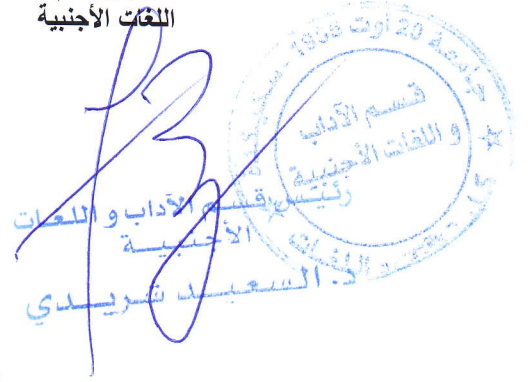 اللغات الأجنبية
جامعة 20 أوت 1955 - سكيكدة
قسم الآداب
و اللغات الأجنبية
رئيس قسم الآداب و اللغات
الأجنبيــة
د. السعيــد شريــدي